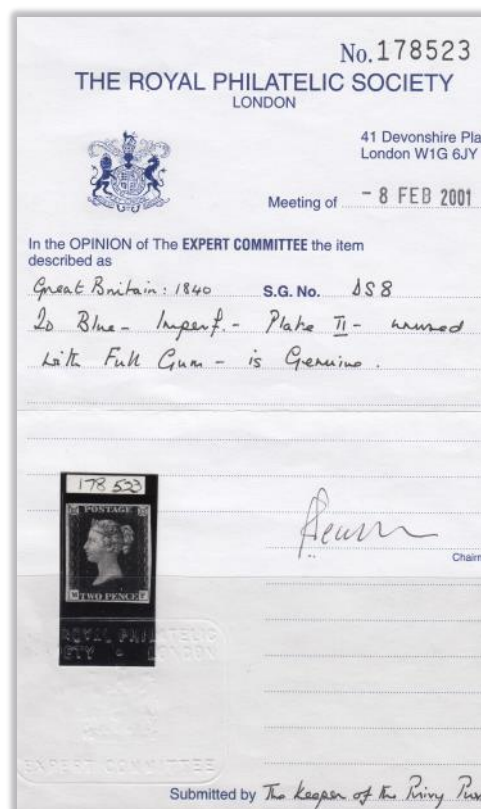 No. 178523
THE ROYAL PHILATELIC SOCIETY
LONDON
41 Devonshire Pla
London W1G 6JY
Meeting of - 8 FEB 2001
In the OPINION of The EXPERT COMMITTEE the item
described as
Great Britain: 1840 S.G. No. DS8
2D Blue - Imperf. - Plate II - unused
with Full Gum - is Genuine.
178 523
POSTAGE
TWO PENCE
Chairm
ROYAL PHILATELIC
ETY LONDON
EXPERT COMMITTEE
Submitted by The Keeper of the Privy Purs